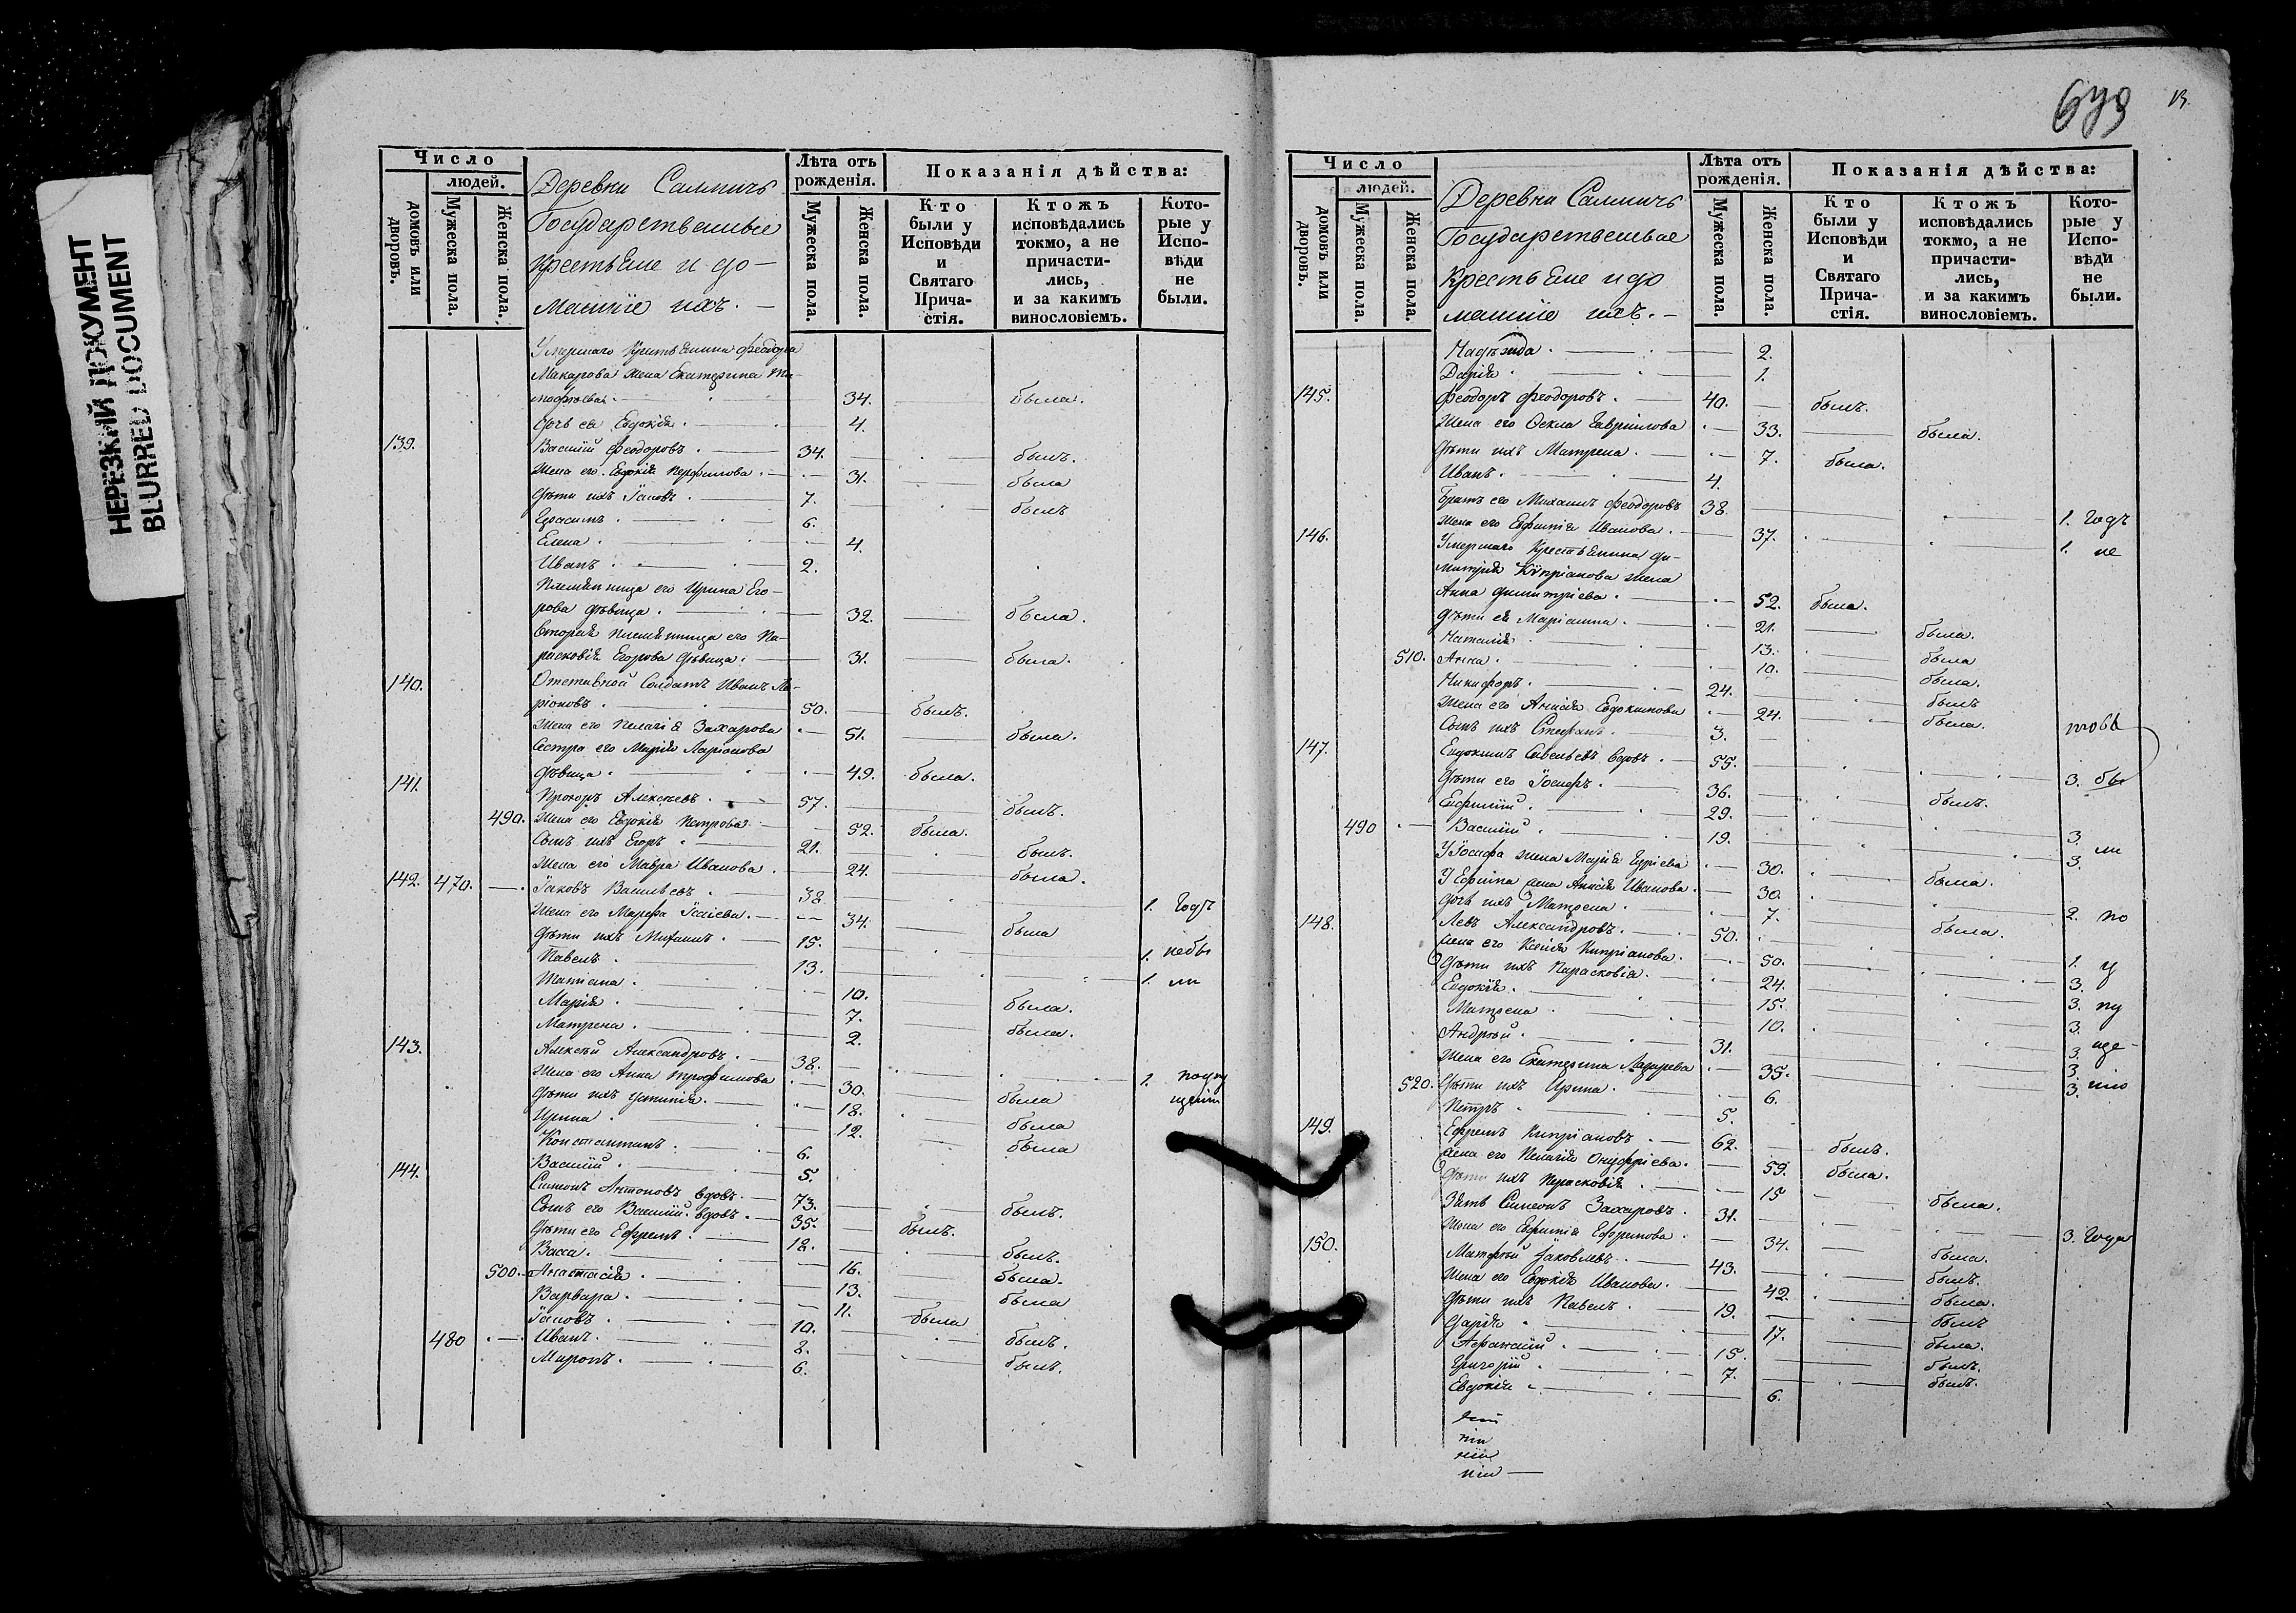 НЕРЕЗКИЙ ДОКУМЕНТ
BLURRED DOCUMENT
Число
людей.
домовъ или дворовъ.
Мужеска пола.
Женска пола.
Деревни
Государственные
крестьяне и до-
машніе ихъ. -
Лѣта отъ рожденія.
Мужеска пола.
Женска пола.
Показанія дѣйства:
Кто были у Исповѣди и Святаго Прича-стія.
Ктожъ исповѣдались токмо, а не причасти-лись, и за какимъ винословіемъ.
Кото-рые у Испо-вѣди не были.
Умершаго крестьянина Феодора
Макарова жена Екатерина Ти-
мофѣева 34. была.
дочь ея Евдокія. 4.
139. Василій Феодоровъ. 34. былъ.
Жена его Евдокія Перфилова. 31. была
Дѣти ихъ Іаковъ. 7. былъ
Герасимъ. 6.
Елена. 4.
Иванъ. 2.
Племянница его Ирина Его-
рова дѣвица. 32. была.
Вторая племянница его Па-
расковія Егорова дѣвица. 31. была.
140. Отставной Солдатъ Иванъ Ла-
ріоновъ. 50. былъ.
Жена его Пелагія Захарова 51. была.
Сестра его Марія Ларіонова
дѣвица. 49. была.
141. Прохоръ Алексѣевъ. 57. былъ.
490. Жена его Евдокія Петрова. 52. была.
Сынъ ихъ Егоръ 21. былъ.
Жена его Мавра Иванова. 24. была.
142. 470. Іаковъ Васильевъ. 38. 1. Годъ
Жена его Марфа Ісаіева. 34. была
Дѣти ихъ Михаилъ. 15. 1. небы
Павелъ. 13. 1. ли
Татіана. 10. была.
Марія. 7. была.
Матрена. 2.
143. Алексѣй Александровъ. 38. 1.
Жена его Анна Трофимова 30. была
Дѣти ихъ Устинія. 18. была
Ирина. 12. была
Константинъ. 6.
Василій. 5.
144. Симеонъ Антоновъ вдовъ. 73. былъ.
Сынъ его Василій вдовъ. 35. былъ.
Дѣти его Ефремъ. 18. былъ.
Васса. 16. была.
500. Анастасія. 13. была
Варвара. 11. была
Іаковъ. 10. былъ.
480 Иванъ. 8. былъ.
Миронъ. 6.
649
Число
людей.
домовъ или дворовъ.
Мужеска пола.
Женска пола.
Деревни
Государственные
Крестьяне и до
машніе ихъ. -
Лѣта отъ рожденія.
Мужеска пола.
Женска пола.
Показанія дѣйства:
Кто были у Исповѣди и Святаго Прича-стія.
Ктожъ исповѣдались токмо, а не причасти-лись, и за какимъ винословіемъ.
Кото-рые у Испо-вѣди не были.
Надѣжда. 2.
Дарія. 1.
145. Феодоръ Феодоровъ. 40. былъ.
Жена его Ѳекла Гаврилова 33. была.
Дѣти ихъ Матрена. 7. была.
Иванъ. 4.
Братъ его Михаилъ Феодоровъ 38 1. Годъ
Жена его Евфимія Иванова. 37. 1. не
146. Умершаго Крестьянина Ди-
митрія Кипріанова жена
Анна Димитріева. 52. была.
Дѣти ея Маріамна. 21. была.
Наталія 13. была
510. Анна. 10. была.
Никифоръ. 24. былъ
Жена его Анисія Евдокимова 24. была.
Сынъ ихъ Стефанъ. 3.
147. Евдокимъ Савельевъ вдовъ. 55. 3. бы
Дѣти его Іосифъ. 36. былъ.
Ефимій. 29. 3. ли
490 Василій. 19. 3.
У Іосифа жена Марія Гуріева 30. была.
У Ефима жена Анисія Иванова. 30. 2. по
дочь ихъ Матрена. 7. была.
148. Левъ Александровъ. 50. 1. у
жена его Ксенія Кипріанова. 50. 3.
Дѣти ихъ Парасковія. 24. 3. пу
Евдокія. 15. 3.
Матрена 10. 3. ще-
Андрей. 31. 3.
Жена его Екатерина Лазарева 35. 3. нію
520. Дѣти ихъ Ирина. 6.
Петръ. 5.
149. Ефремъ Кипріановъ. 62. былъ.
жена его Пелагія Онуфріева. 59. была.
Дѣти ихъ Парасковія. 15 была.
Зять Симеонъ Захаровъ. 31. 3. Года
Жена его Евфимія Ефремова. 34. была.
150. Матфей Іаковлевъ. 43. былъ.
Жена его Евдокія Иванова. 42. была.
Дѣти ихъ Павелъ. 19. былъ
Дарія 17. была.
Афанасій. 15. былъ.
Григорій. 7. былъ.
Евдокія 6.